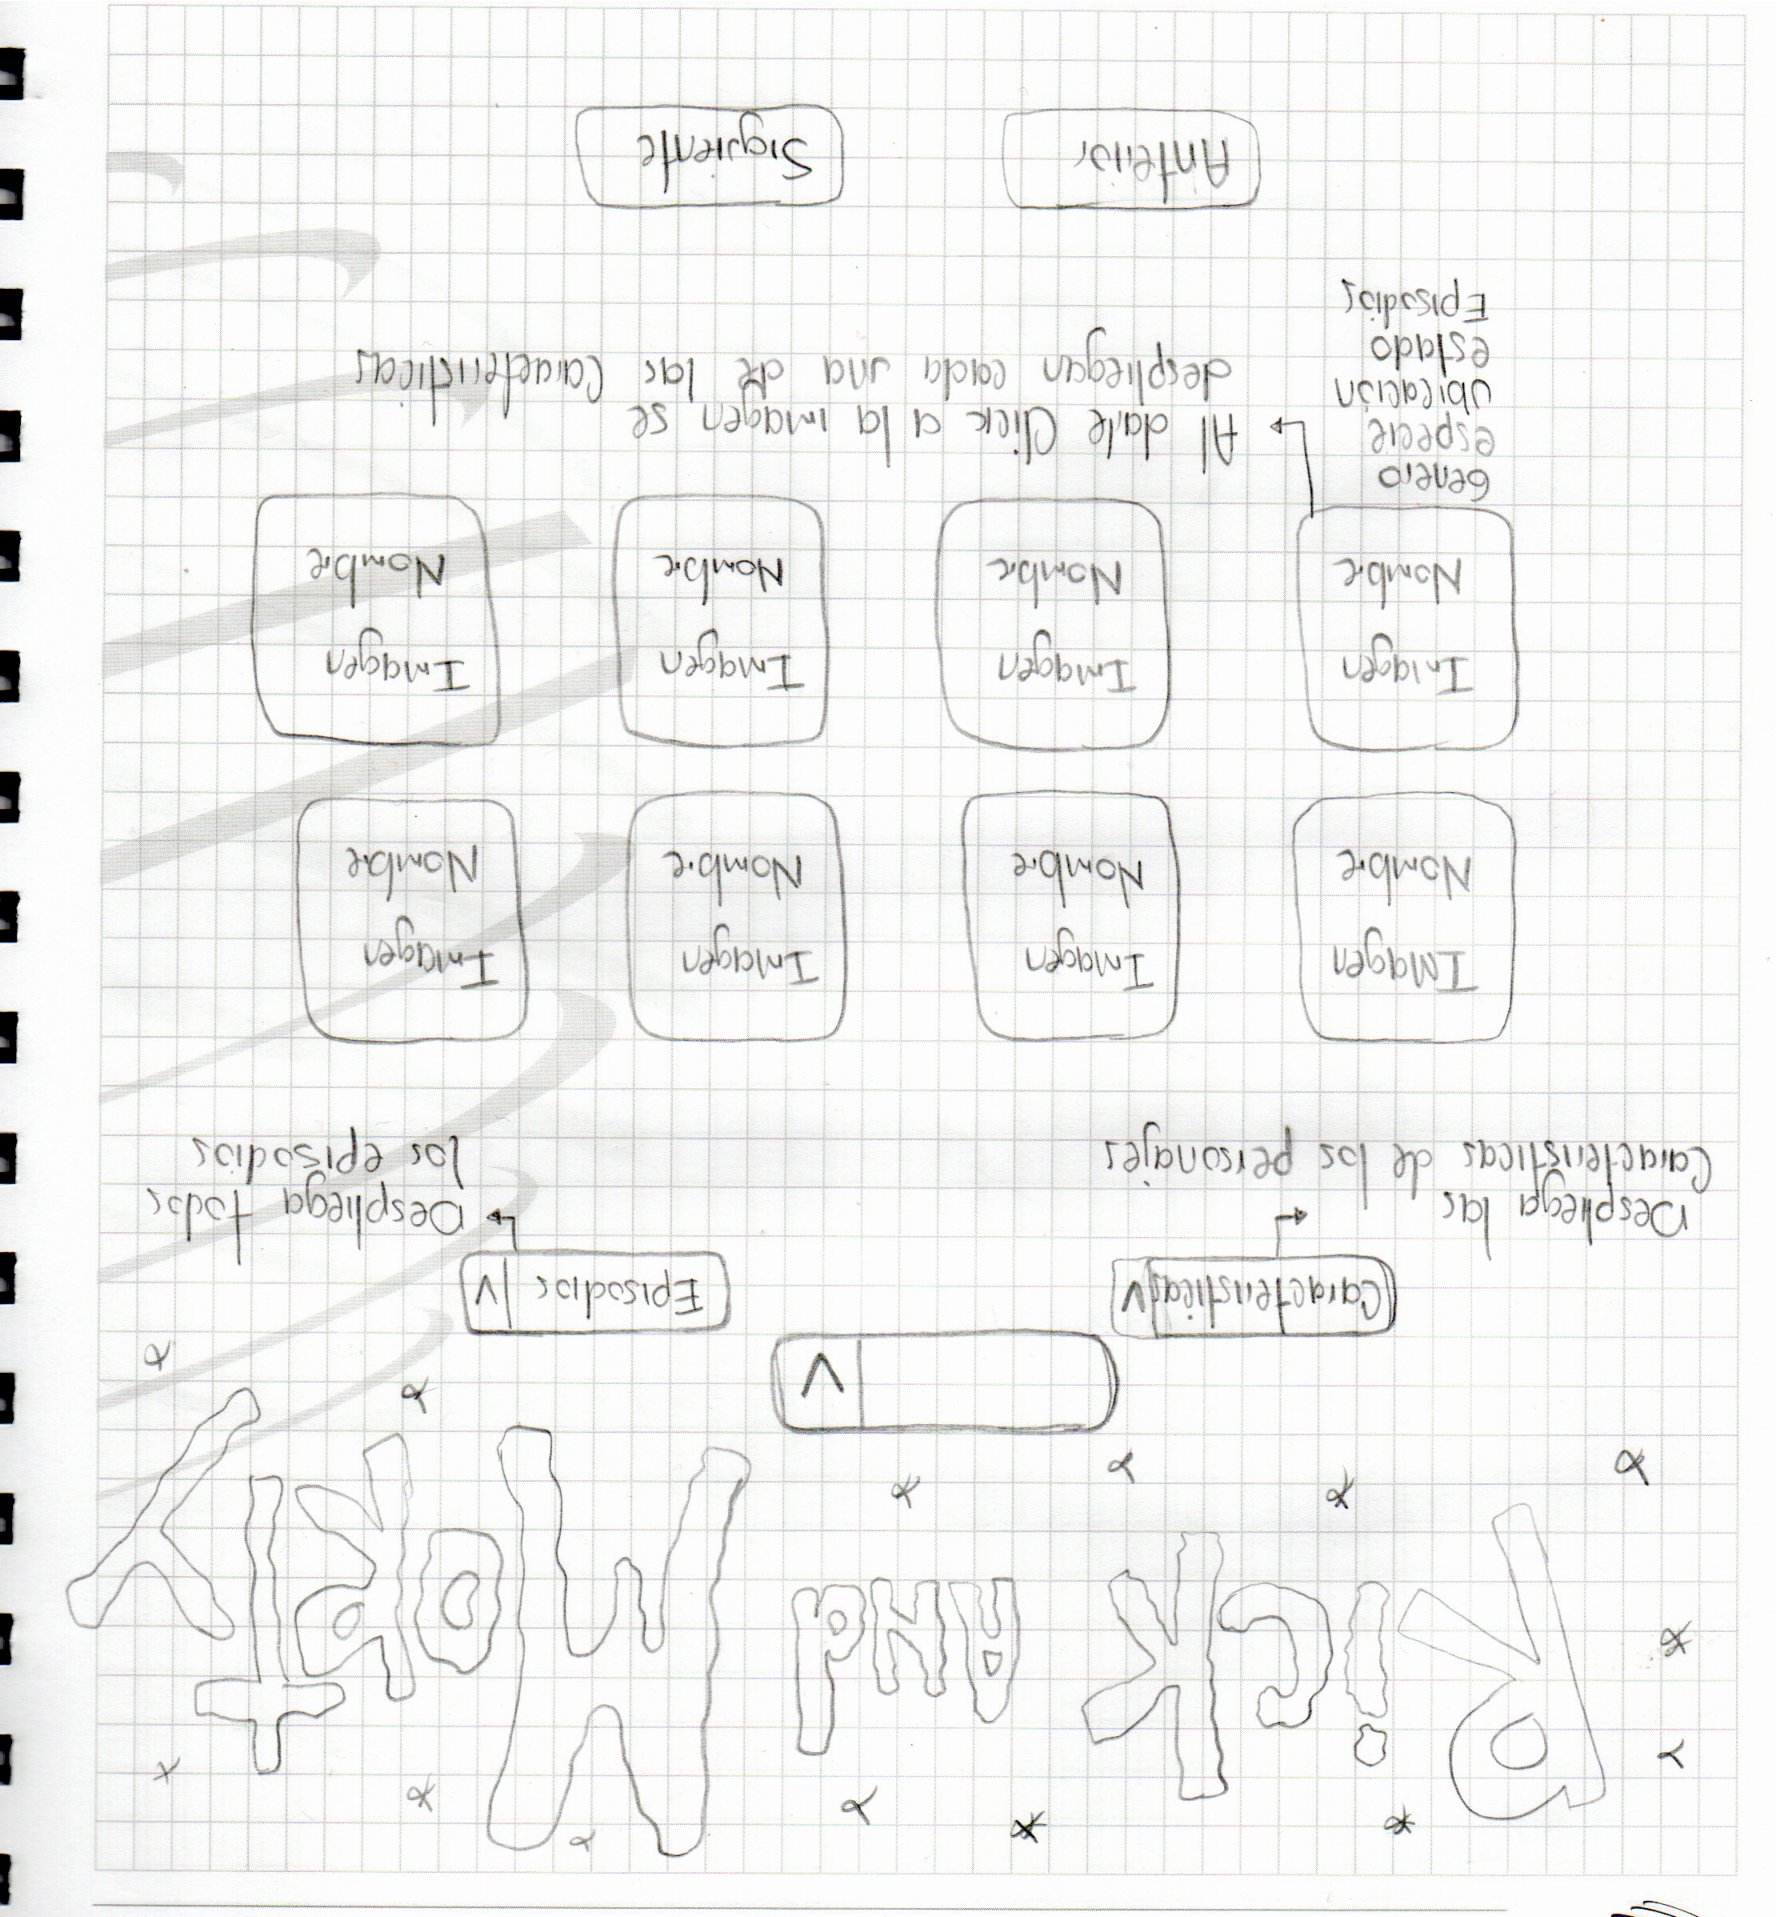 Rick And Morty
V
Caracteristicas V
Episodios V
Despliega las
Caracteristicas de los personajes
Despliega todos
los episodios
Imagen
Nombre
Imagen
Nombre
Imagen
Nombre
Imagen
Nombre
Imagen
Nombre
Imagen
Nombre
Imagen
Nombre
Imagen
Nombre
Genero
especie
Ubicación
estado
Episodios
Al darle Click a la imagen se
despliegan cada una de las Caracteristicas
Anterior
Siguiente